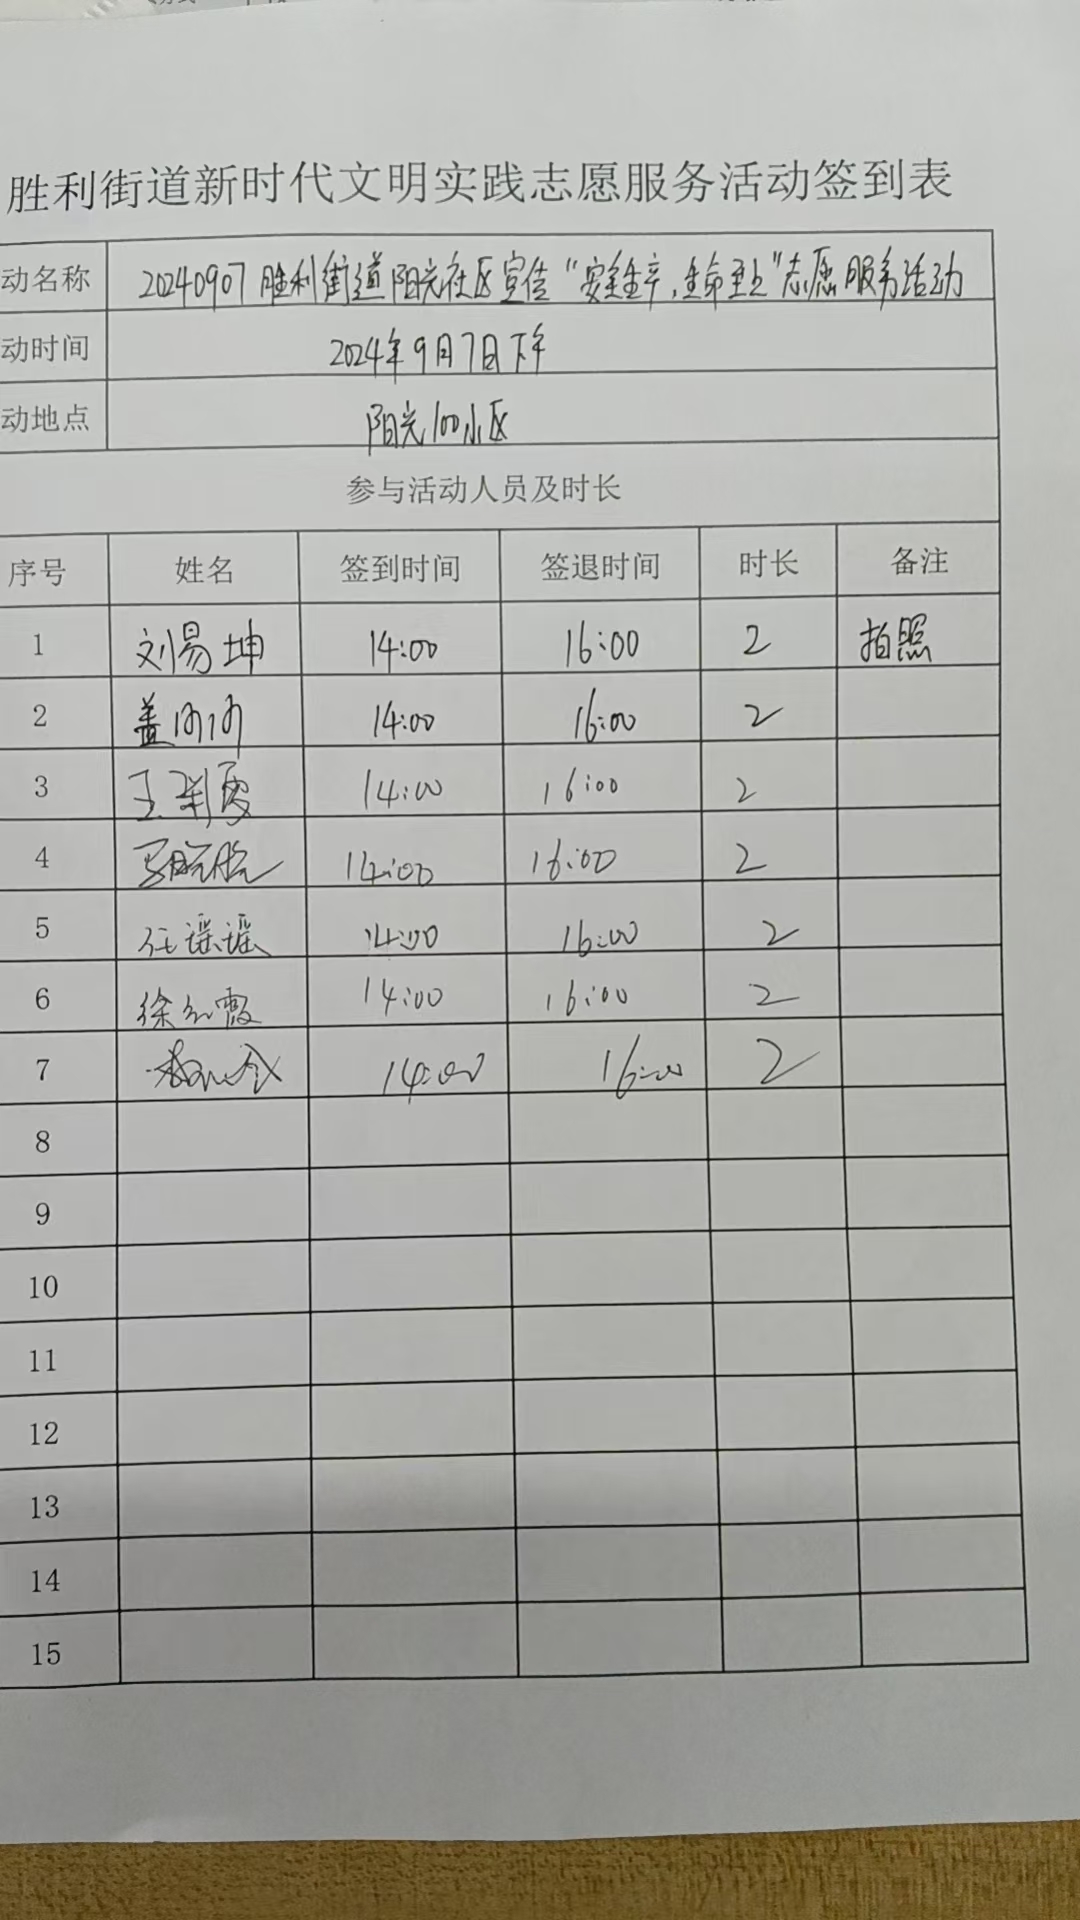 胜利街道新时代文明实践志愿服务活动签到表
动名称 20240907胜利街道阳光社区宣传“安全生产,生命至上”志愿服务活动
动时间 2024年9月7日下午
动地点 阳光100小区
参与活动人员及时长
序号 姓名 签到时间 签退时间 时长 备注
1 刘易坤 14:00 16:00 2 拍照
2 盖 14:00 16:00 2
3 王 14:00 16:00 2
4 14:00 16:00 2
5 任谣谣 14:00 16:00 2
6 徐红霞 14:00 16:00 2
7 14:00 16:00 2
8
9
10
11
12
13
14
15